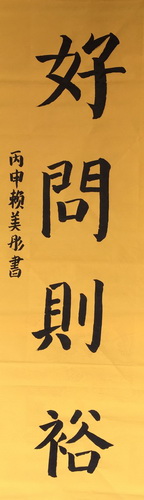 好問則裕
丙申賴美彤書